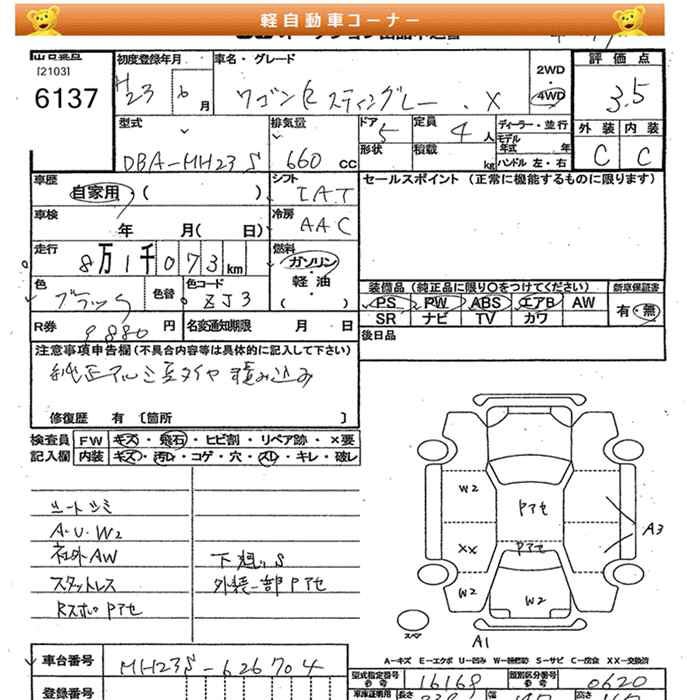 軽自動車コーナー
[2103]
6137
初度登録年月
H23 6月
車名・グレード
ワゴンR スティングレー ・X
2WD
・
4WD
評価点
3.5
外装 内装
C C
型式
DBA-MH23S
排気量
660 cc
ドア
5
形状
定員
4人
積載
kg
ディーラー・並行
モデル年式 年
ハンドル 左・右
車歴
自家用・( )
シフト
IAT
セールスポイント (正常に機能するものに限ります)
車検
年 月( 日)
冷房
AAC
走行
8万1千073km
燃料
ガソリン
・
軽油
・
( )
色
ブラック
色替
色コード
ZJ3
装備品(純正品に限り○をつけてください)
PS PW ABS エアB AW
SR ナビ TV カワ
新車保証書
有・無
R券 9880円
名変通知期限 月 日
後日品
注意事項申告欄(不具合内容等は具体的に記入して下さい)
純正アルミ夏タイヤ積み込み
修復歴 有 〔箇所 〕
検査員記入欄
FW キズ・飛石・ヒビ割・リペア跡・×要
内装 キズ・汚レ・コゲ・穴・スレ・キレ・破レ
シートシミ
A・U・W2
社外AW
スタットレス
RスポPアセ
下廻りS
外装一部Pアセ
W2
Pアセ
A3
XX
Pアセ
W2
W2
スペア
A1
A=キズ E=エクボ U=凹み W=補修跡 S=サビ C=腐食 XX=交換済
車台番号
MH23S-626704
型式指定番号
参考
16168
類別区分番号
参考
0620
登録番号
車庫証明用
参考
長さ
幅
高さ